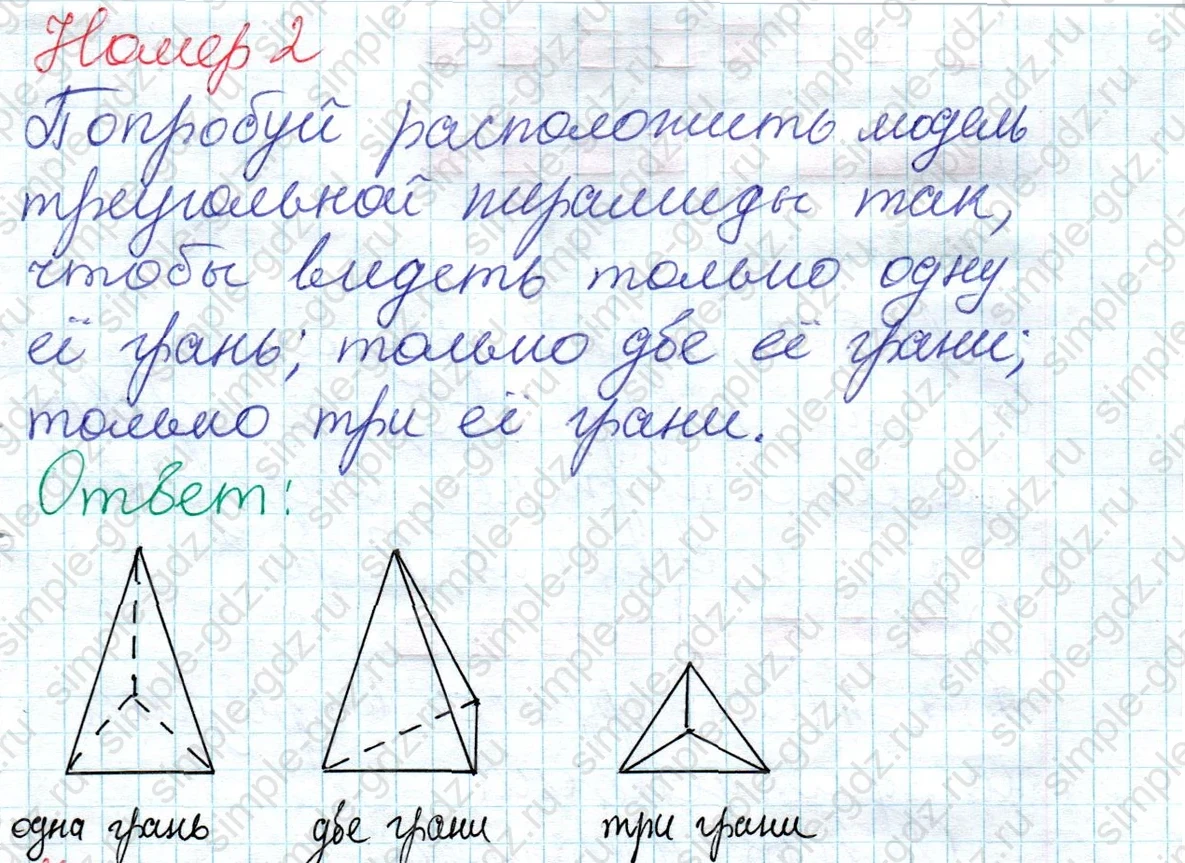 Номер 2
Попробуй расположить модель
треугольной пирамиды так,
чтобы видеть только одну
её грань; только две её грани;
только три её грани.
Ответ:
одна грань две грани три грани
simple-gdz.ru